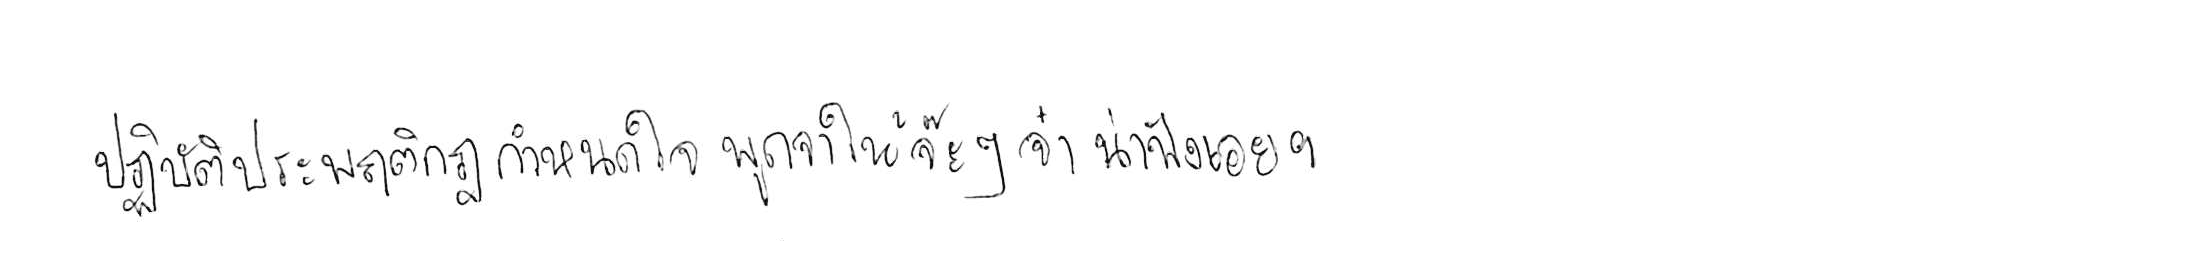 ปฏิบัติประพฤติกฎ กำหนดใจ พูดจาให้จ๊ะๆ จ๋า น่าฟังเอยฯ